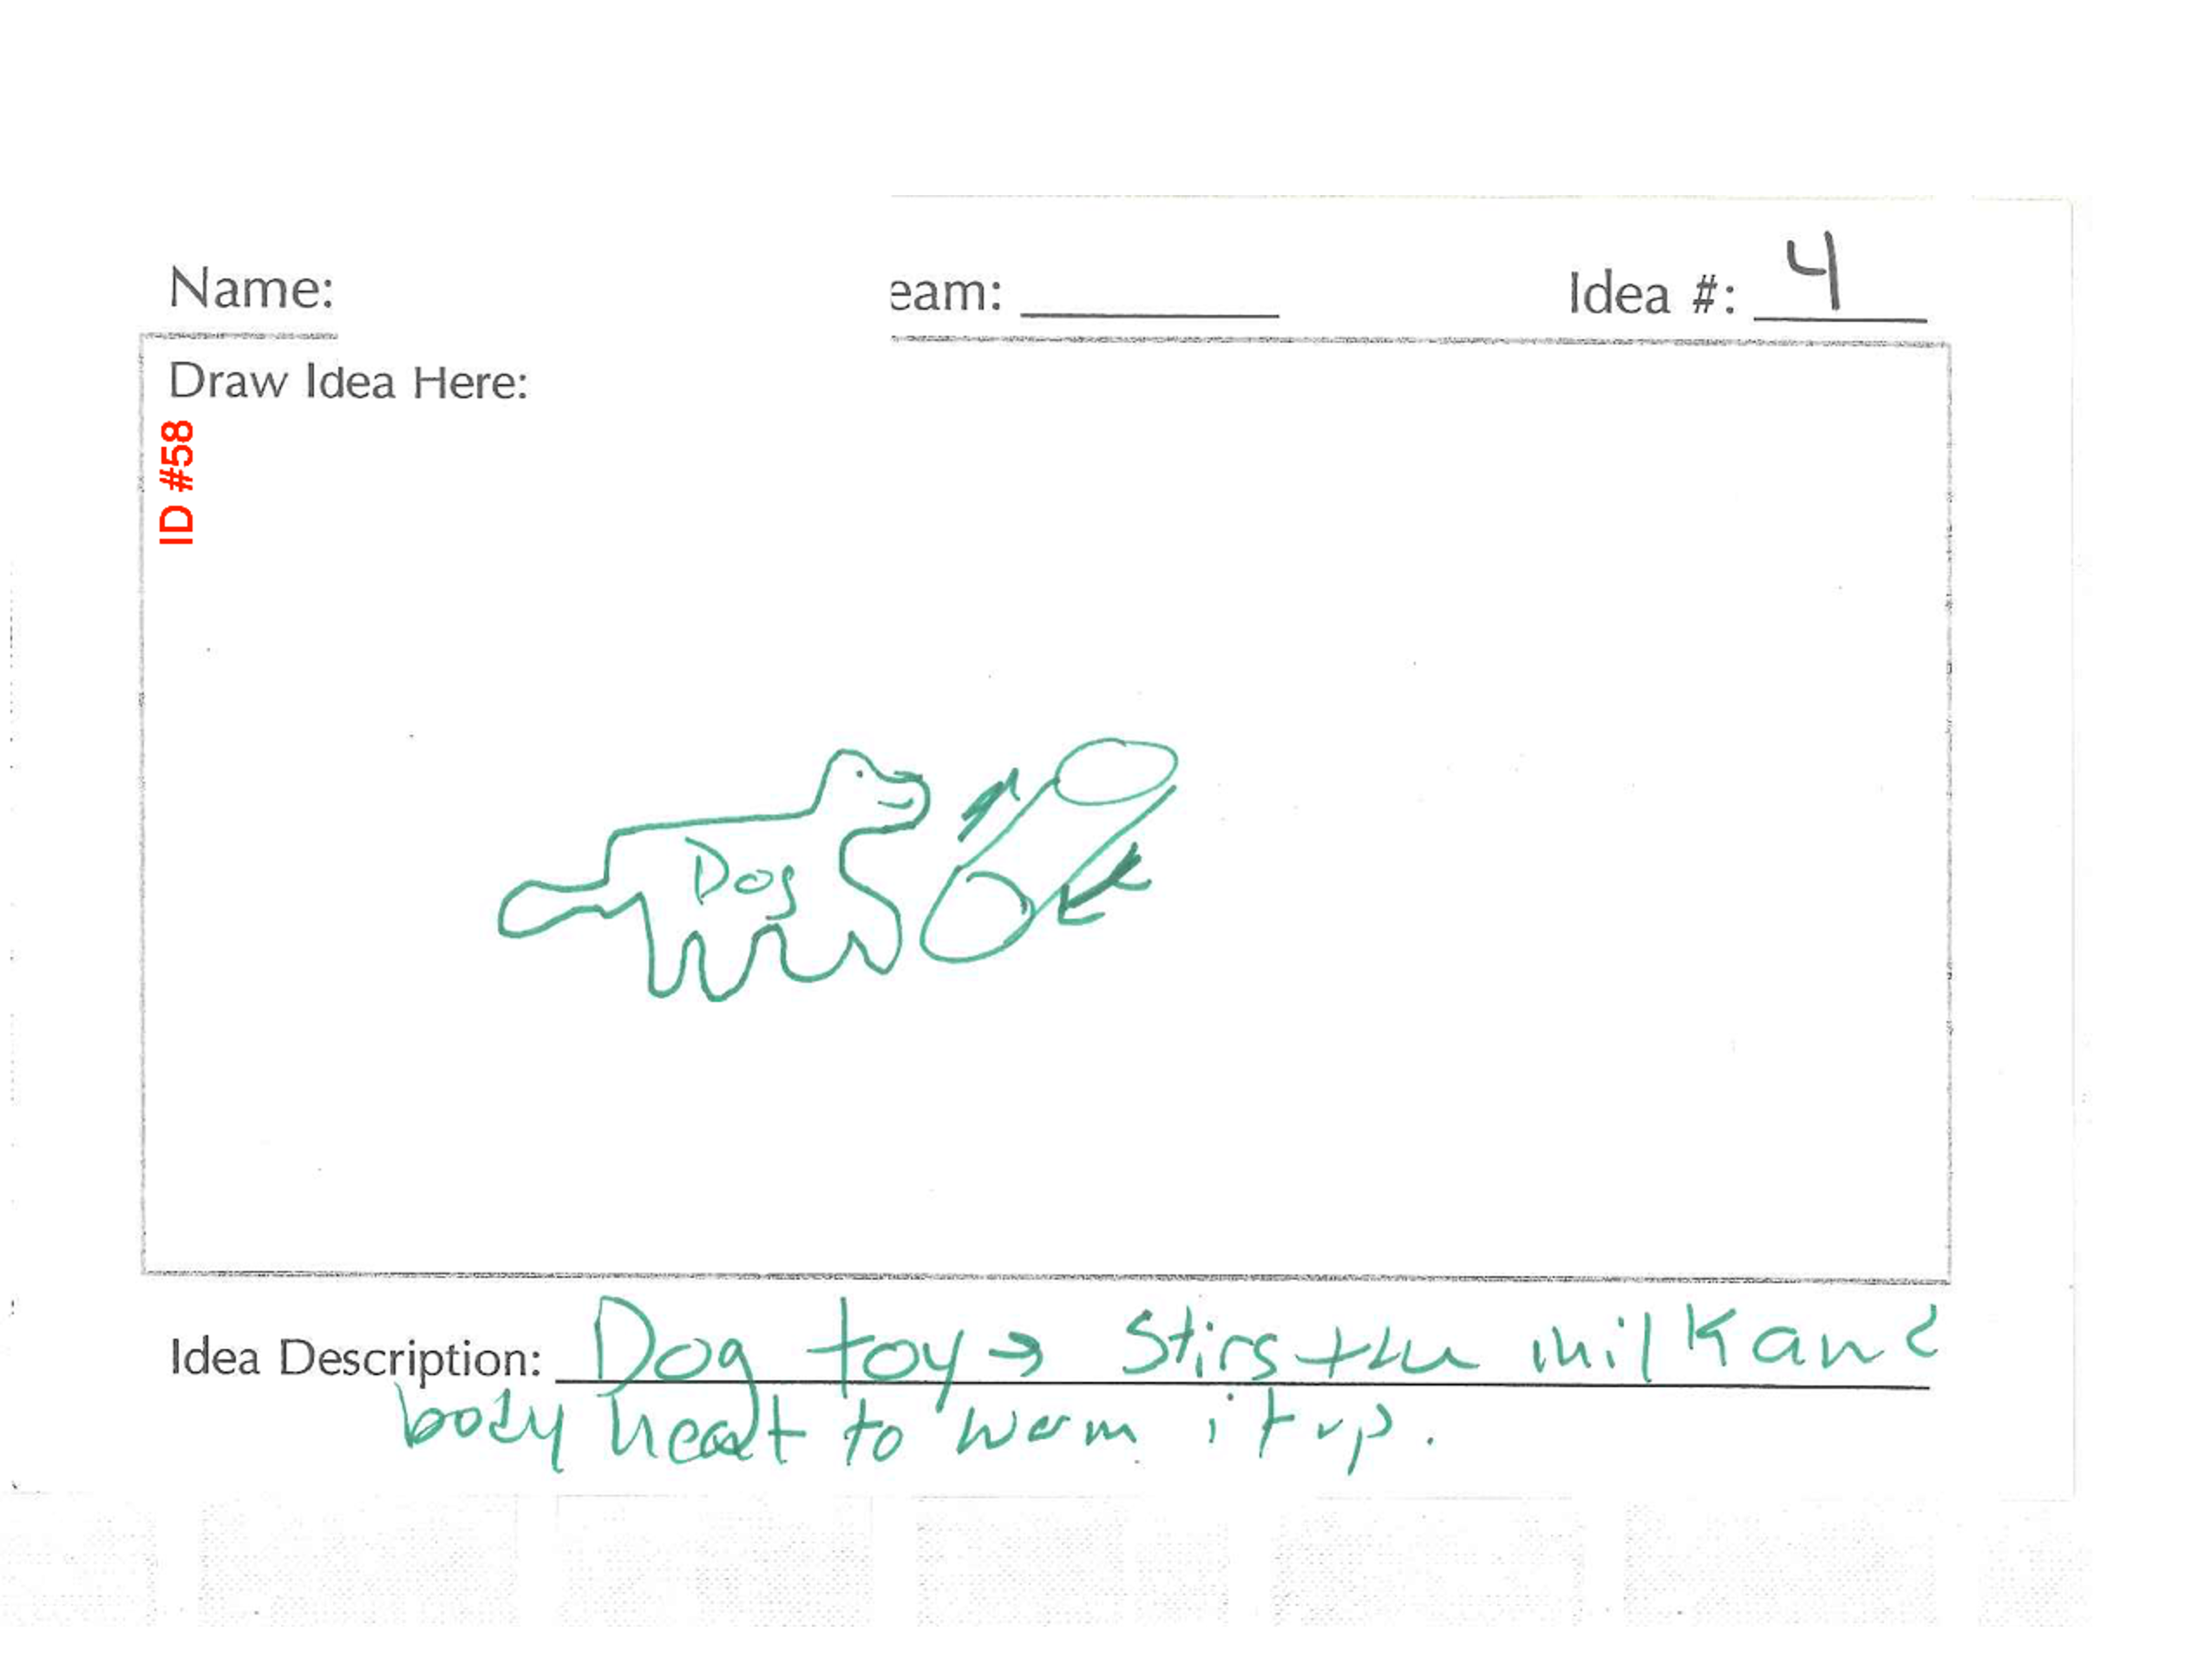 Name:
eam:
Idea #: 4
Draw Idea Here:
ID #58
Dog
Idea Description: Dog toy → Stirs the milk and
body heat to warm it up.